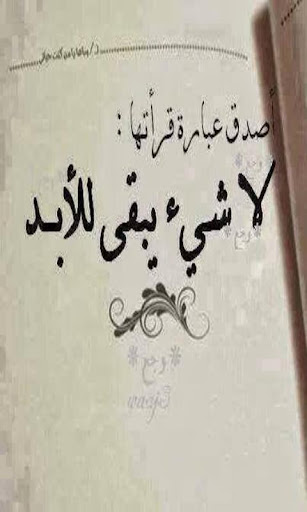 أصدق عبارة قرأتها :
لا شيء يبقى للأبد
*وجع*
*وجع*
waaj3